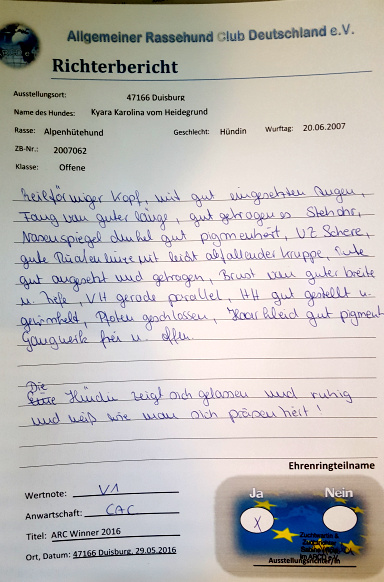 Allgemeiner Rassehund Club Deutschland e.V.
Richterbericht
Ausstellungsort: 47166 Duisburg
Name des Hundes: Kyara Karolina vom Heidegrund
Rasse: Alpenhütehund Geschlecht: Hündin Wurftag: 20.06.2007
ZB-Nr.: 2007062
Klasse: Offene
keilförmiger Kopf, mit gut eingesetzten Augen,
Fang von guter länge, gut getragenes Stehohr,
Nasenspiegel dunkel gut pigmentiert, VZ Schere,
gute Rückenlinie mit leicht abfallender Kruppe, Rute
gut angesetzt und getragen, Brust von guter breite
u. tiefe, VH gerade parallel, HH gut gestellt u.
gewinkelt, Pfoten geschlossen, Haarkleid gut pigment
Gangwerk frei u. offen.
Die
Hündin zeigt sich gelassen und ruhig
und weiß wie man sich präsentiert!
Ehrenringteilname
Ja Nein
X
Wertnote: V1
Anwartschaft: CAC
Titel: ARC Winner 2016
Ort, Datum: 47166 Duisburg, 29.05.2016
Ausstellungsrichter/in